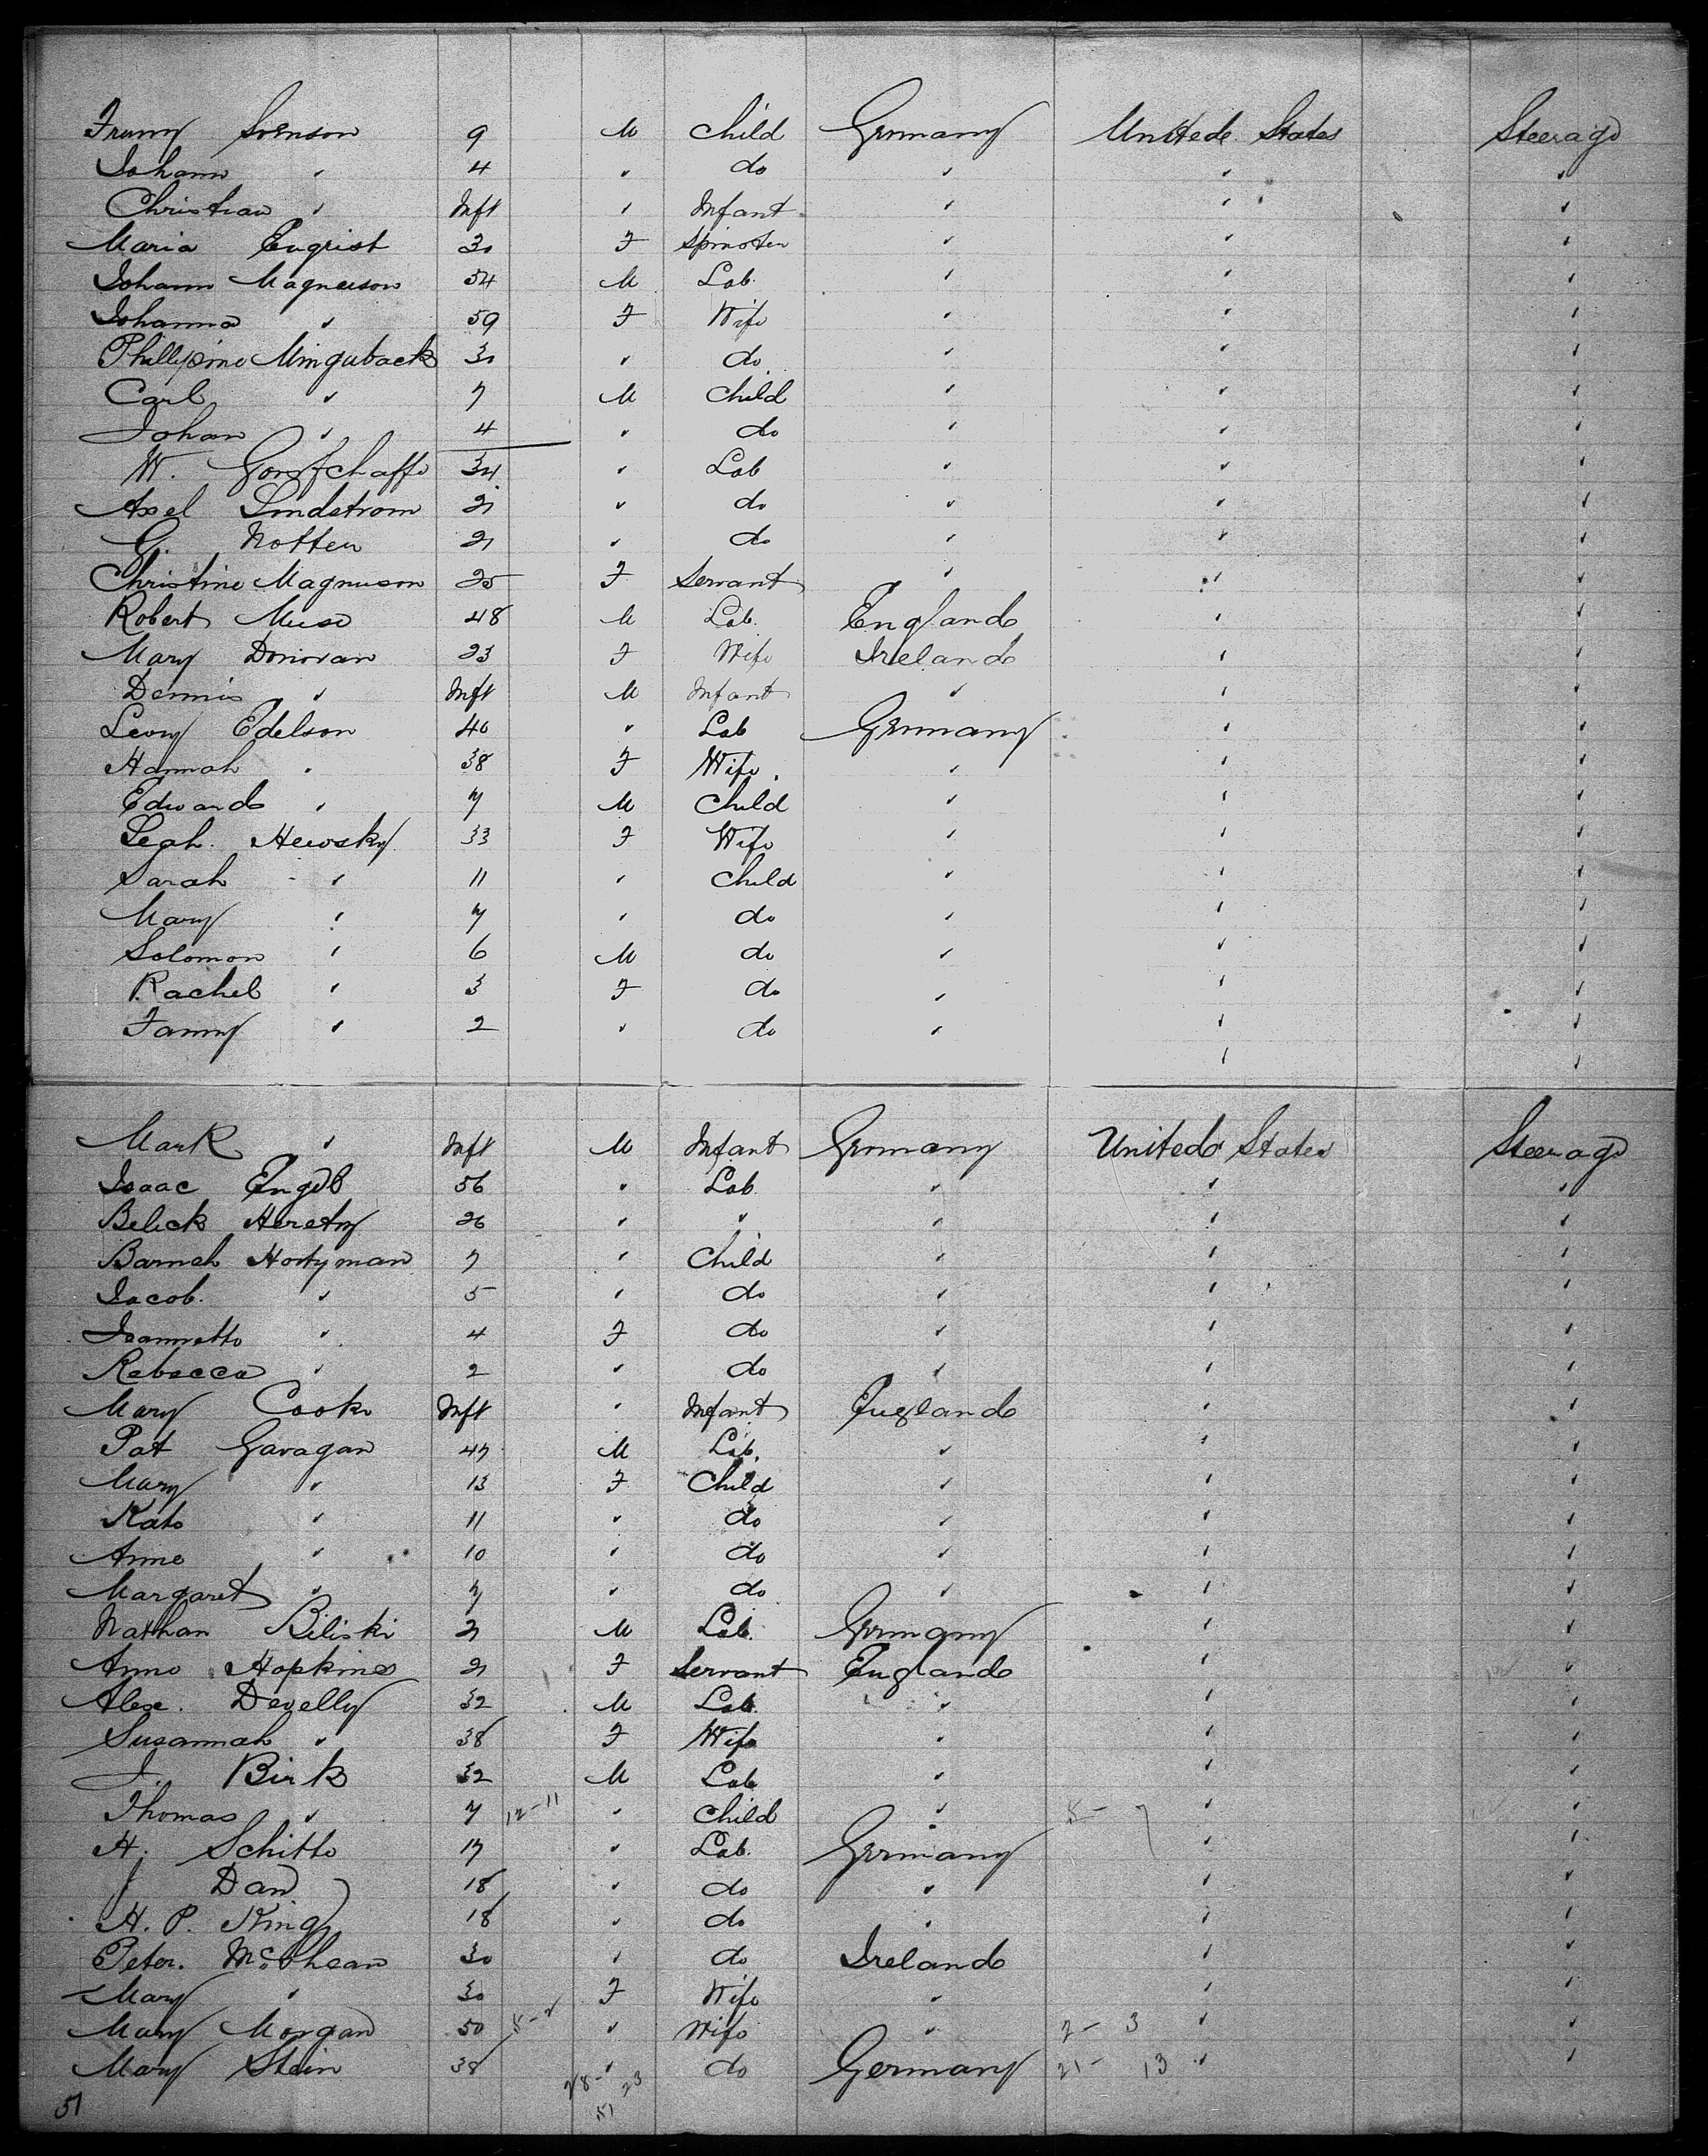 Franz Svenson 9 M Child Germany United States Steerage
Johann " 4 " do " " "
Christian " Inft " Infant " " "
Maria Engrist 30 F Spinster " " "
Johann Magnuson 54 M Lab. " " "
Johanna " 59 F Wife " " "
Phillipine Minguback 30 " do " " "
Carl " 7 M Child " " "
Johan " 4 " do " " "
W. 34 " Lab " " "
Axel Lindstrom 21 " do " " "
G. Notten 21 " do " " "
Christine Magnuson 25 F Servant " " "
Robert Muse 48 M Lab. England " "
Mary Donovan 23 F Wife Ireland " "
Dennis " Inft M Infant " " "
Levy Edelson 40 " Lab Germany " "
Hannah " 38 F Wife " " "
Edward " 7 M Child " " "
Leah. Hewsky 33 F Wife " " "
Sarah " 11 " Child " " "
Mary " 7 " do " " "
Solomon " 6 M do " " "
Rachel " 3 F do " " "
Fanny " 2 " do " " "
" "
Mark " Inft M Infant Germany United States Steerage
Isaac Engel 56 " Lab. " " "
Belick 26 " " " " "
Barneh Hortyman 7 " Child " " "
Jacob. " 5 " do " " "
Jeannette " 4 F do " " "
Rebecca " 2 " do " " "
Mary Cook Inft " Infant England " "
Pat Gavagan 47 M Lab. " " "
Mary " 13 F Child " " "
Kate " 11 " do " " "
Anne " 10 " do " " "
Margaret " 7 " do " " "
Nathan Biliski 21 M Lab. Germany " "
Anne Hopkins 21 F Servant England " "
Alex. Develly 32 M Lab. " " "
Susannah " 38 F Wife " " "
J. Birk 32 M Lab " " "
Thomas " 7 12-11 " Child " 8 - 7 " "
H. Schitte 17 " Lab. Germany " "
J Dan 18 " do " " "
H. P. King 18 " do " " "
Peter. McPhean 30 " do Ireland " "
Mary " 30 F Wife " " "
Mary Morgan 50 " Wife " 2 - 3 " "
Mary Stein 38 " do Germany 21 - 13 " "
28 - 23
51 51